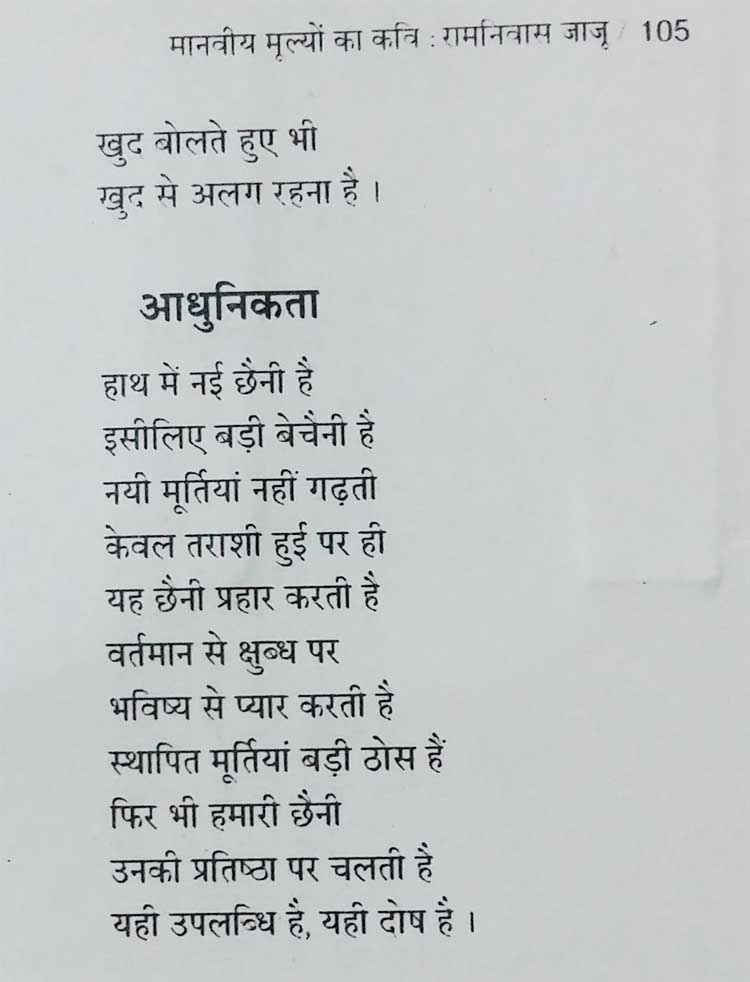 मानवीय मूल्यों का कवि : रामनिवास जाजू / 105
खुद बोलते हुए भी
खुद से अलग रहना है ।
आधुनिकता
हाथ में नई छैनी है
इसीलिए बड़ी बेचैनी है
नयी मूर्तियां नहीं गढ़ती
केवल तराशी हुई पर ही
यह छैनी प्रहार करती है
वर्तमान से क्षुब्ध पर
भविष्य से प्यार करती है
स्थापित मूर्तियां बड़ी ठोस हैं
फिर भी हमारी छैनी
उनकी प्रतिष्ठा पर चलती है
यही उपलब्धि है, यही दोष है ।